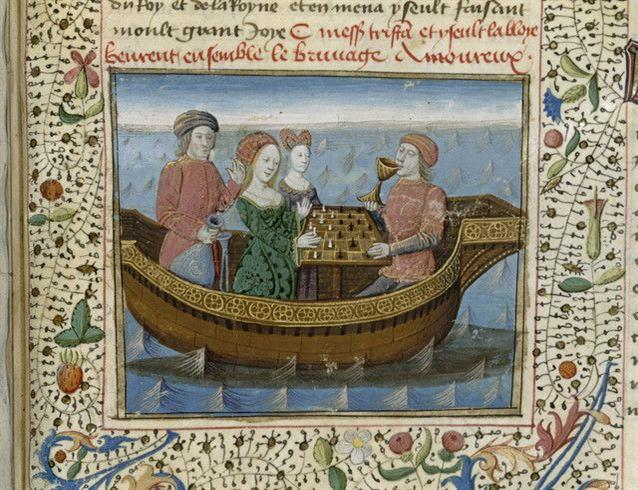 du Roy et de la Royne et en mena yseult faisant
moult grant Joye C mess tristan et yseult la bloye
beurent ensemble le bruuage Amoureux